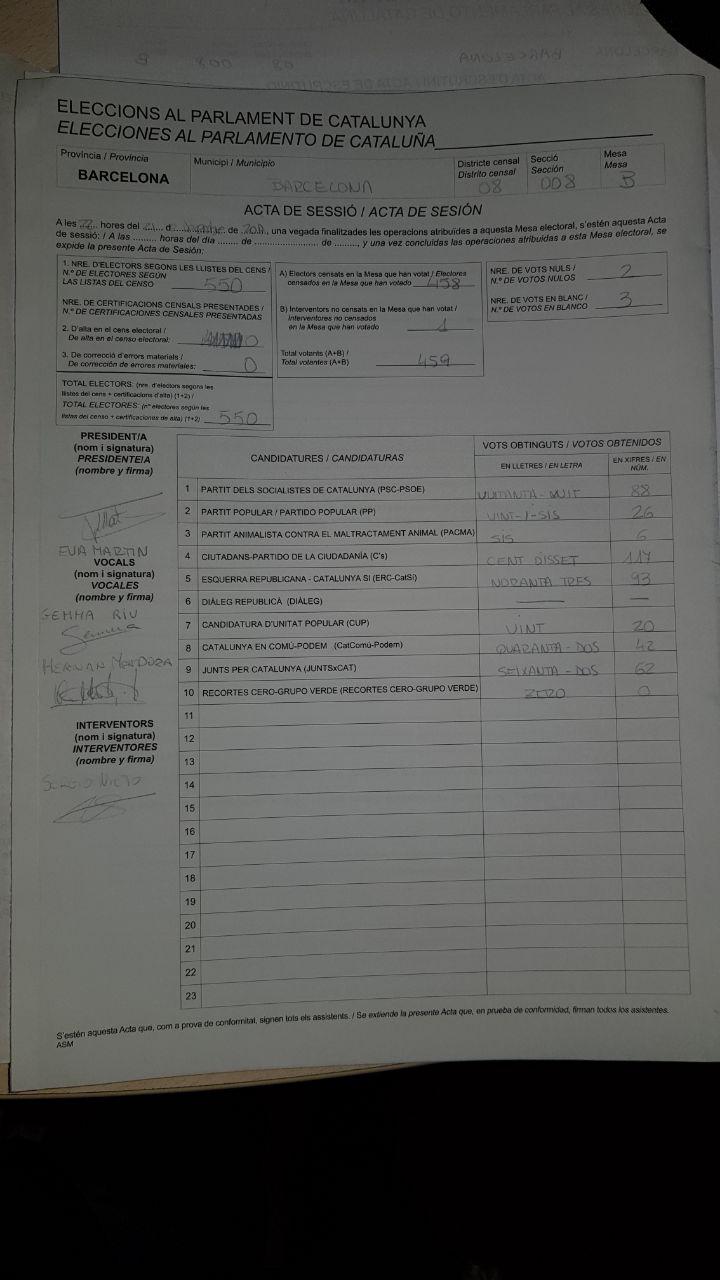 ELECCIONS AL PARLAMENT DE CATALUNYA
ELECCIONES AL PARLAMENTO DE CATALUÑA
Província / Provincia
BARCELONA
Municipi / Municipio
BARCELONA
Districte censal
Distrito censal
08
Secció
Sección
008
Mesa
Mesa
B
ACTA DE SESSIÓ / ACTA DE SESIÓN
A les 22 hores del 21 d de , una vegada finalitzades les operacions atribuïdes a aquesta Mesa electoral, s'estén aquesta Acta
de sessió: / A las ......... horas del día ....... de ...................... de ........, y una vez concluidas las operaciones atribuidas a esta Mesa electoral, se
expide la presente Acta de Sesión:
1. NRE. D'ELECTORS SEGONS LES LLISTES DEL CENS /
N.º DE ELECTORES SEGÚN
LAS LISTAS DEL CENSO 550
NRE. DE CERTIFICACIONS CENSALS PRESENTADES /
N.º DE CERTIFICACIONES CENSALES PRESENTADAS
2. D'alta en el cens electoral /
De alta en el censo electoral: 0
3. De correcció d'errors materials /
De corrección de errores materiales: 0
TOTAL ELECTORS: (nre. d'electors segons les
llistes del cens + certificacions d'alta) (1+2) /
TOTAL ELECTORES: (nº electores según las
listas del censo + certificaciones de alta) (1+2) 550
A) Electors censats en la Mesa que han votat / Electores
censados en la Mesa que han votado 458
B) Interventors no censats en la Mesa que han votat /
Interventores no censados
en la Mesa que han votado 1
Total votants (A+B) /
Total votantes (A+B) 459
NRE. DE VOTS NULS /
N.º DE VOTOS NULOS 2
NRE. DE VOTS EN BLANC /
N.º DE VOTOS EN BLANCO 3
PRESIDENT/A
(nom i signatura)
PRESIDENTE/A
(nombre y firma)
EVA MARTIN
VOCALS
(nom i signatura)
VOCALES
(nombre y firma)
GEMMA RIU
HERNAN MENDOZA
INTERVENTORS
(nom i signatura)
INTERVENTORES
(nombre y firma)
SERGIO NIETO
CANDIDATURES / CANDIDATURAS
VOTS OBTINGUTS / VOTOS OBTENIDOS
EN LLETRES / EN LETRA
EN XIFRES / EN NÚM.
1 PARTIT DELS SOCIALISTES DE CATALUNYA (PSC-PSOE) VUITANTA-VUIT 88
2 PARTIT POPULAR / PARTIDO POPULAR (PP) VINT-I-SIS 26
3 PARTIT ANIMALISTA CONTRA EL MALTRACTAMENT ANIMAL (PACMA) SIS 6
4 CIUTADANS-PARTIDO DE LA CIUDADANÍA (C's) CENT DISSET 117
5 ESQUERRA REPUBLICANA - CATALUNYA SÍ (ERC-CatSí) NORANTA TRES 93
6 DIÀLEG REPUBLICÀ (DIÀLEG) — —
7 CANDIDATURA D'UNITAT POPULAR (CUP) VINT 20
8 CATALUNYA EN COMÚ-PODEM (CatComú-Podem) QUARANTA-DOS 42
9 JUNTS PER CATALUNYA (JUNTSxCAT) SEIXANTA-DOS 62
10 RECORTES CERO-GRUPO VERDE (RECORTES CERO-GRUPO VERDE) ZERO 0
11
12
13
14
15
16
17
18
19
20
21
22
23
S'estén aquesta Acta que, com a prova de conformitat, signen tots els assistents. / Se extiende la presente Acta que, en prueba de conformidad, firman todos los asistentes.
ASM